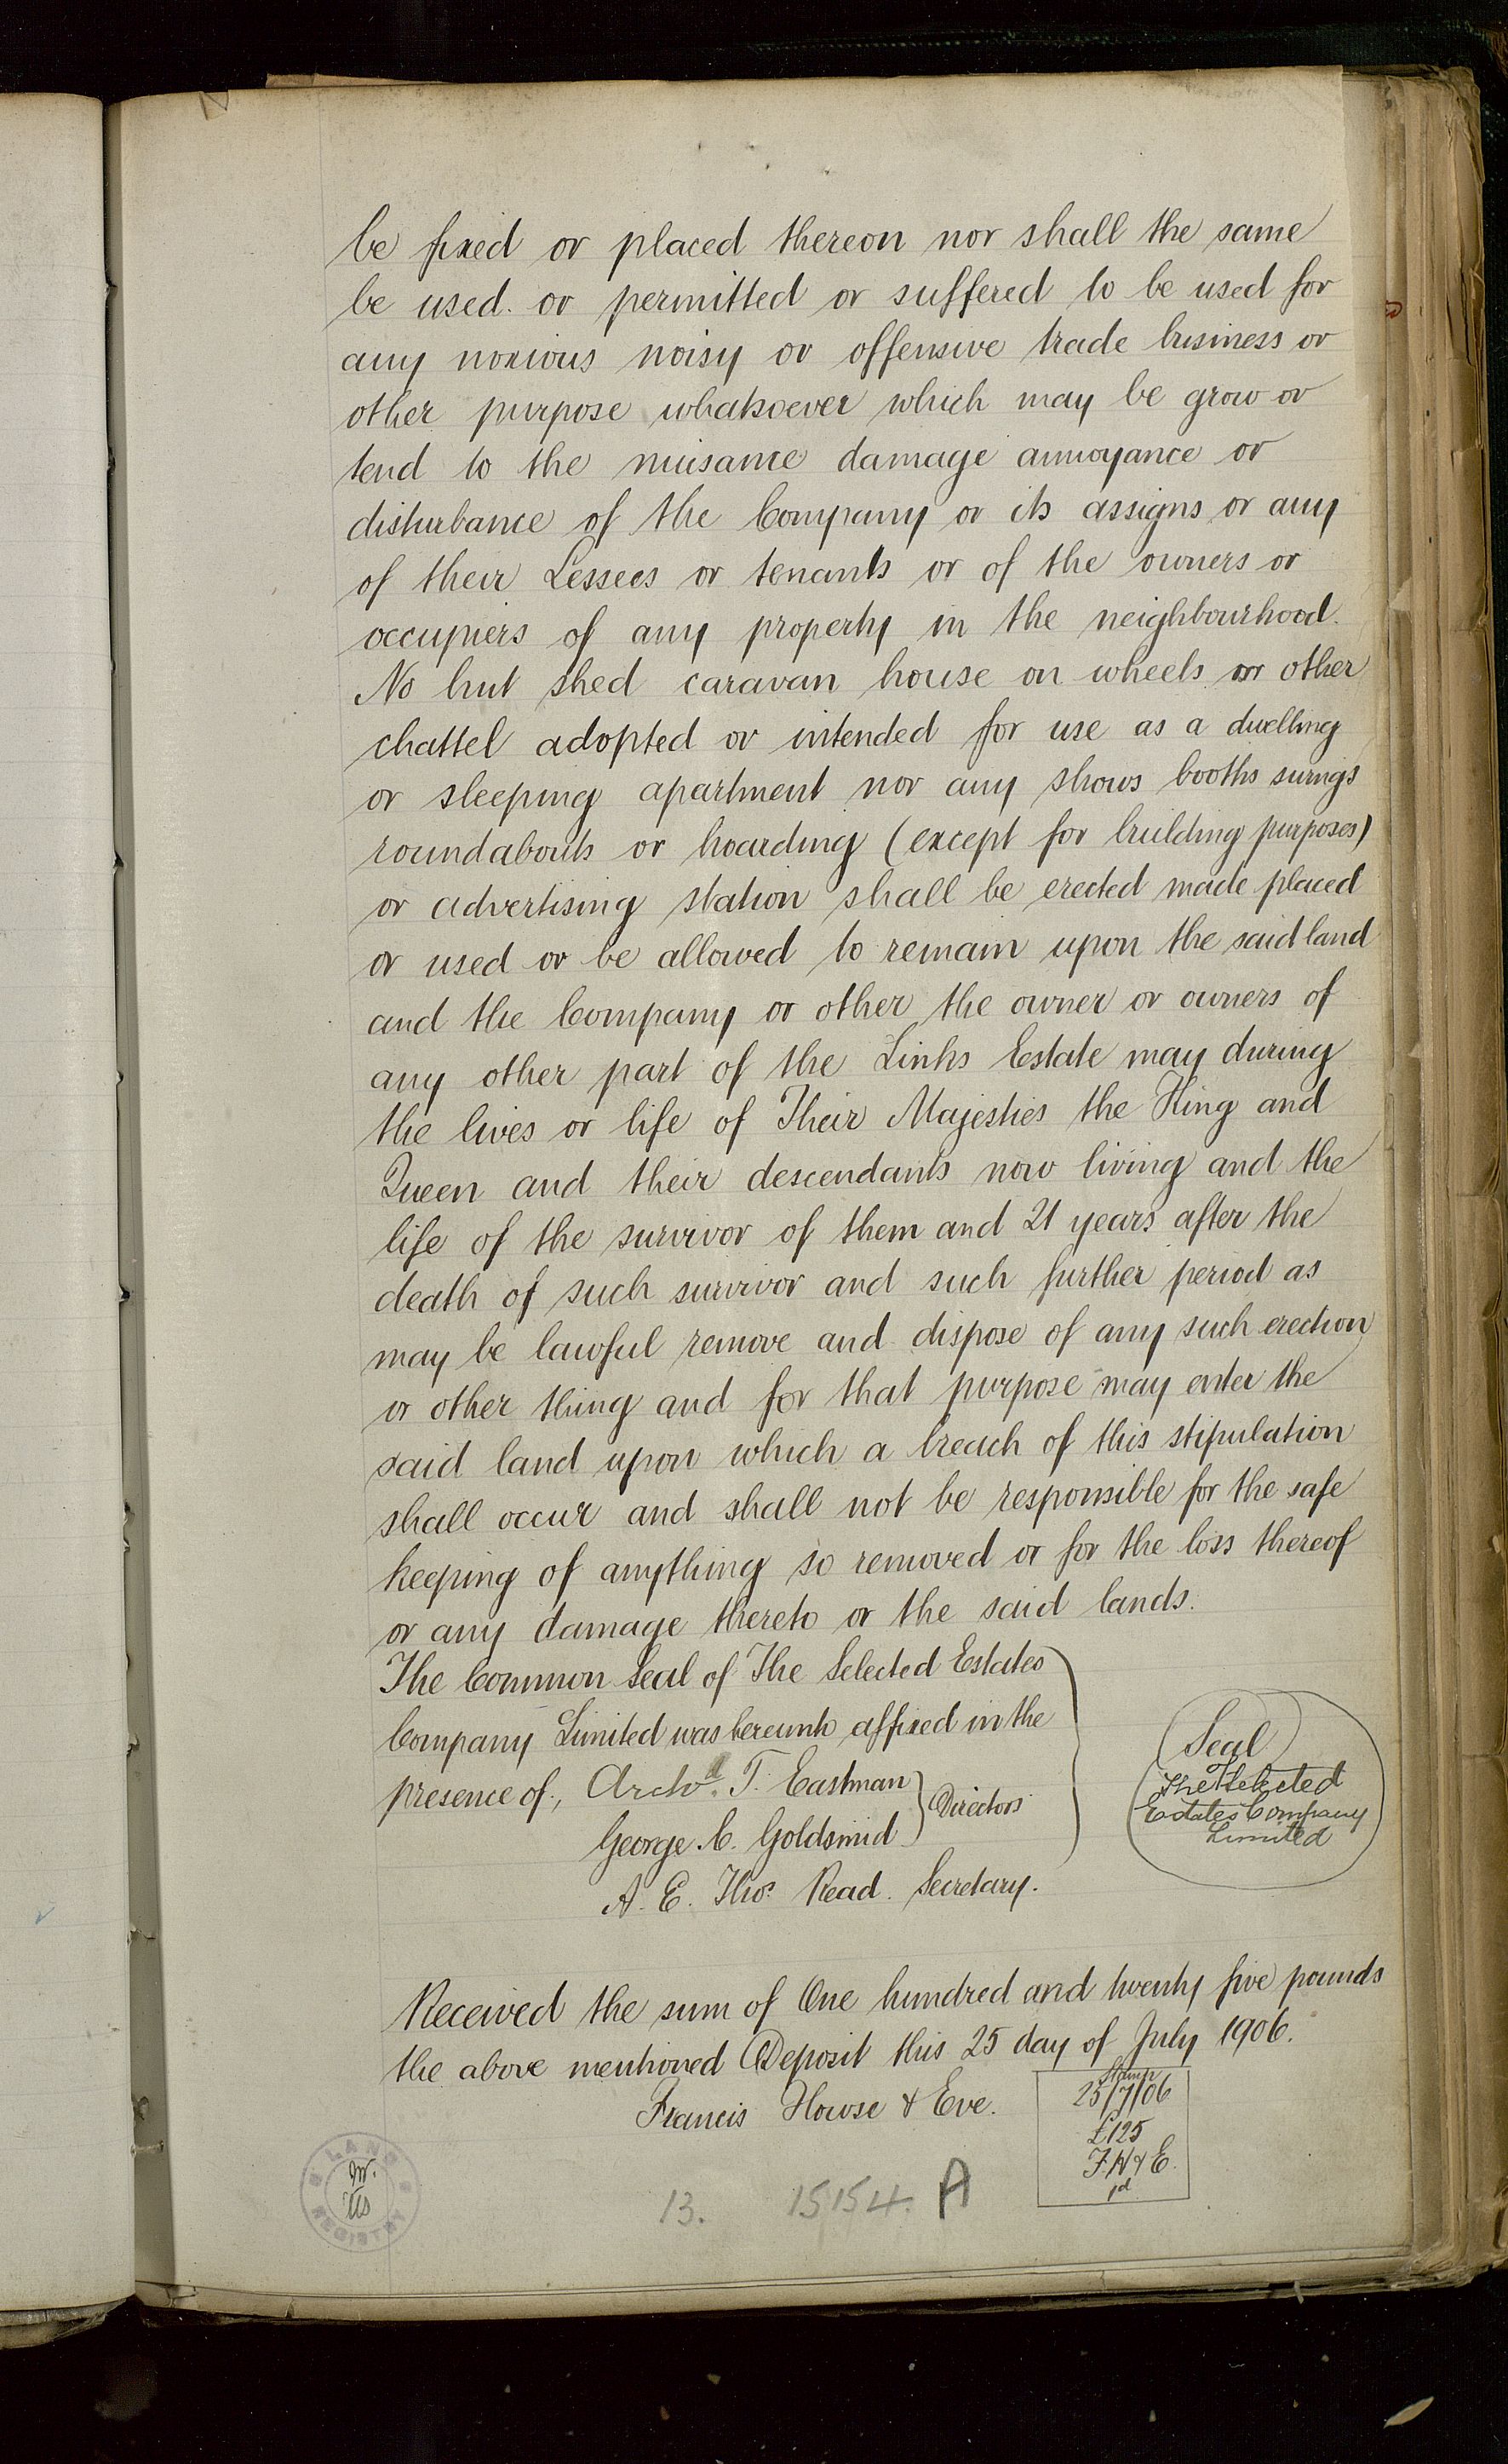 be fixed or placed thereon nor shall the same
be used. or permitted or suffered to be used for
any noxious noisy or offensive trade business or
other purpose whatsoever which may be grow or
tend to the nuisance damage annoyance or
disturbance of the Company or its assigns or any
of their Lessees or tenants or of the owners or
occupiers of any property in the neighbourhood.
No hut shed caravan house on wheels or other
chattel adopted or intended for use as a dwelling
or sleeping apartment nor any shows booths swings
roundabouts or hoarding (except for building purposes)
or advertising station shall be erected made placed
or used or be allowed to remain upon the said land
and the Company or other the owner or owners of
any other part of the Links Estate may during
the lives or life of Their Majesties the King and
Queen and their descendants now living and the
life of the survivor of them and 21 years after the
death of such survivor and such further period as
may be lawful remove and dispose of any such erection
or other thing and for that purpose may enter the
said land upon which a breach of this stipulation
shall occur and shall not be responsible for the safe
keeping of anything so removed or for the loss thereof
or any damage thereto or the said lands.
The Common Seal of The Selected Estates
Company Limited was hereunto affixed in the
presence of, Archd. T. Eastman
George C. Goldsmid
Directors
A. E. Thos. Read. Secretary.
Seal
The Selected
Estates Company
Limited
Received the sum of One hundred and twenty five pounds
the above mentioned Deposit this 25 day of July 1906.
Francis Howse & Eve.
Stamp
25/7/06
£125
F. H & E.
1d
LAND
REGISTRY
13. 15154. A